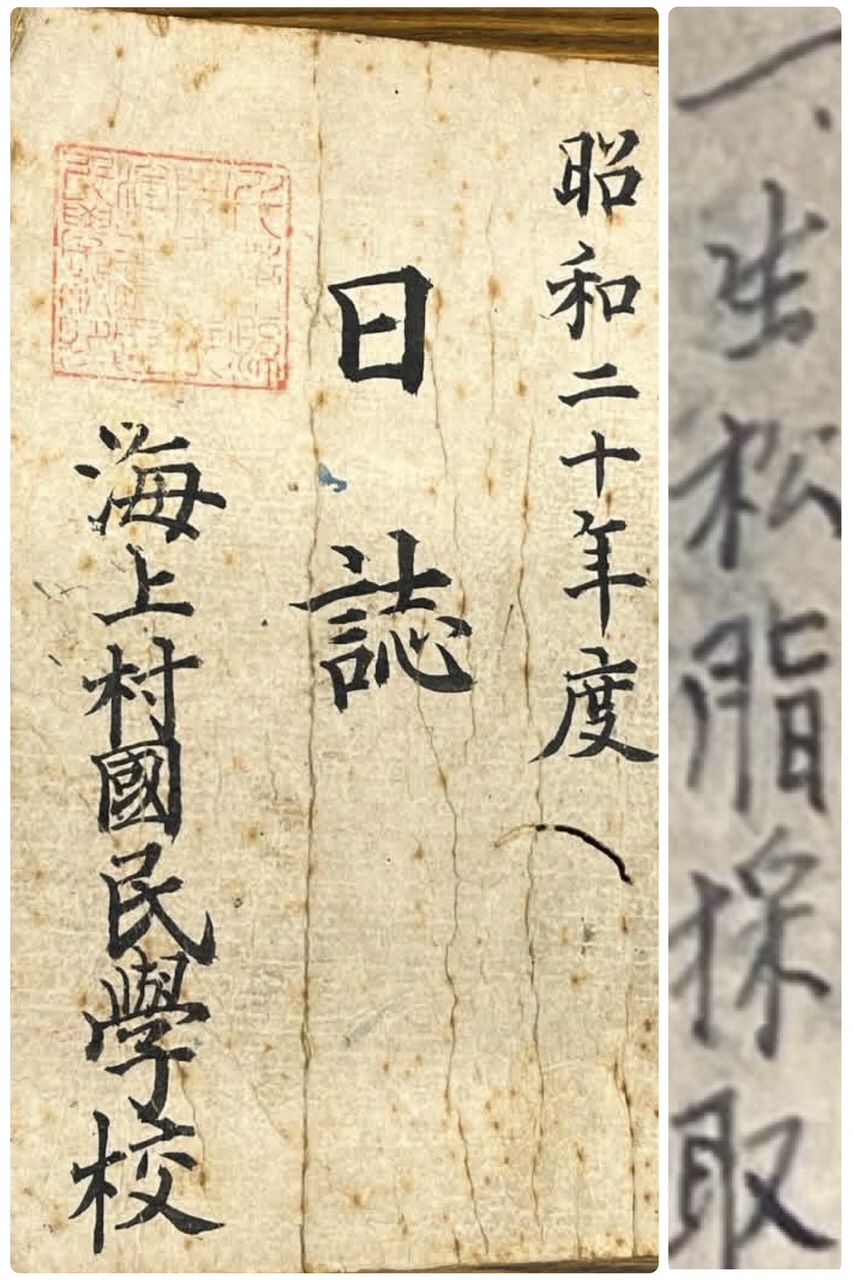 昭和二十年度
日誌
海上村國民學校
一、生松脂採取